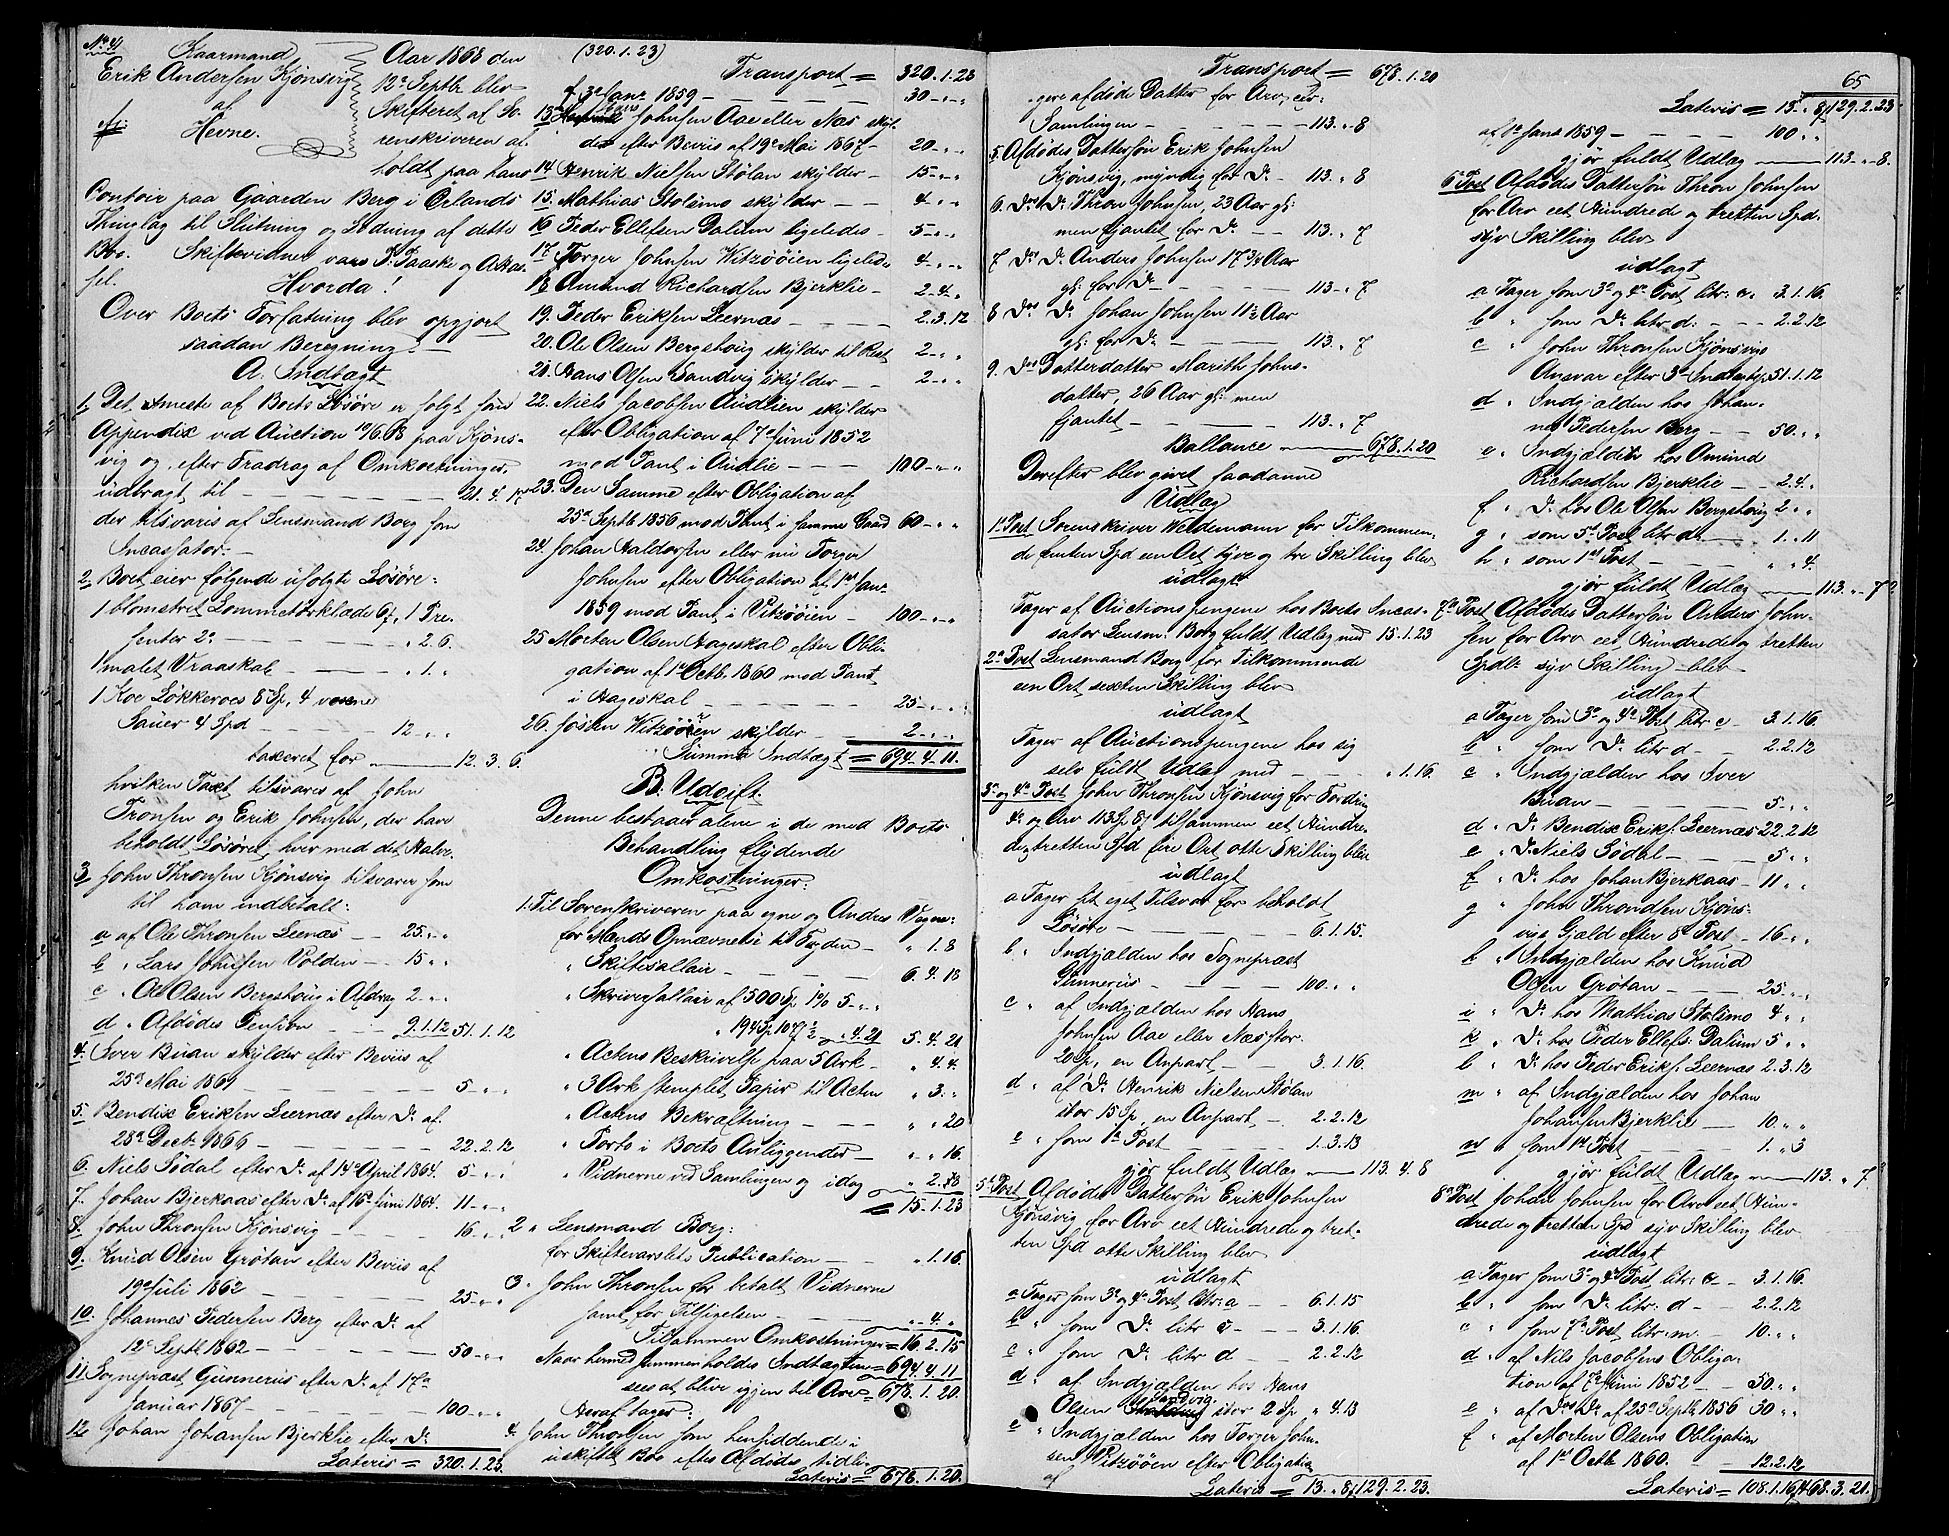 No 4
Kaarmand
Erik Andersen Kjønsvig
af
Hevne.
Aar 1868 den
12te Septbr blev
Skifteret af So-
renskriveren af-
holdt paa hans
Contoir paa Gaarden Berg i Ørlands
Thinglag til Slutning og Udlodning af dette
Bo. Skiftevidner vare P. Paaske og
Hvorda!
Over Boets Forfatning blev opgjort
saadan Beregning:
A. Indtægt
1. Det meste af Boets Løsøre er solgt som
Appendix ved Auction 10/6.68 paa Kjøns-
vig og, efter Fradrag af Omkostninger,
udbragt til - - - 21. 4. 17
der tilsvares af Lensmand Borg som
Incassator. -
2. Boet eier følgende usolgte Løsøre:
1 blomstret Lommetørklæde 6 s, 1 Pre-
senter 2 - - - " 2. 6.
1 malet Vraaskab - - " 1. "
1 Koe Løkkeroes 8 Sp, 4 voxne
Sauer 4 Spd - - 12 " "
taxeret for - 12. 3. 6.
hvilken Taxt tilsvares af John
Tronsen og Erik Johnsen, der have
beholdt Løsøret, hver med det Halve.
3. John Thronsen Kjønsvig tilsvarer som
til ham indbetalt:
a af Ole Thronsen Leernæs - 25. " "
b " Lars Johnsen Volden - 15 " "
c " Ole Olsen Bergshoug i Afdrag 2 - " "
d " Afdødes Pension - - 9. 1. 12 51. 1. 12
4. Iver Buan skylder efter Beviis af
25de Mai 1861 - - - 5 - " "
5. Bendix Eriksen Leernæs efter Do af
28de Decbr 1866 - - - 22. 2. 12
6. Niels Sødal efter Do af 14de April 1864. 5 - " "
7. Johan Bjerkaas efter Do af 16de Juni 1864. 11 - " "
8. John Thronsen Kjønsvig - - - 16. " "
9. Knud Olsen Grøtan efter Beviis af
19de Juli 1862 - - - 25 - " "
10. Johannes Pedersen Berg efter Do af
12te Septbr 1862 - - - 50 - " "
11. Sognepræst Gunnerus efter Do af 17de
Januar 1867 - - - 100 - " "
12. Johan Johansen Bjerklie efter Do
Lateris = 320. 1. 23.
(320. 1. 23)
Transport = 320. 1. 23
f. 3die Janr 1859 - - - 30 - " "
13. Hans Johnsen Aae eller Næs skyl-
der efter Beviis af 19de Mai 1867 - 20 - " "
14. Henrik Nielsen Stølan skylder - 15 - " "
15. Mathias Stolsmo skylder - - 4 " "
16. Peder Ellefsen Dalum ligeledes - 5 - " "
17. Torger Johnsen Witzøöien ligeledes 4 - " "
18. Amund Richardsen Bjerklie - 2. 4. "
19. Peder Eriksen Leernæs - - - 2. 3. 12
20. Ole Olsen Bergshoug skylder til Rest 2 - " "
21. Hans Olsen Sandvig skylder - - 2 - " "
22. Niels Jacobsen Audlien skylder
efter Obligation af 7de Juni 1852
mod Pant i Audlie - - - 100 - " "
23. Den Samme efter Obligation af
25de Septb 1856 mod Pant i samme Gaard 60 - " "
24. Johan Haldorsen eller nu Torger
Johnsen efter Obligation af 1ste Janr
1859 mod Pant i Vitzøöien - 100 - " "
25. Morten Olsen Hageskal efter Obli-
gation af 1ste Octb. 1860 mod Pant
i Hageskal - - - 25 - " "
26. Josten Witzøöien skylder - - 2 - " "
Summa Indtægt = 694. 4. 11.
B. Udgift
Denne bestaaer alene i de med Boets
Behandling flydende
Omkostninger:
1. Til Sorenskriveren paa egne og Andres Vegne:
for Mænds Opnævnelse til Fogden - " 1. 8
" Skiftesallair - - - 6. 4. 18
" Skriversallair af 500 Sp 1% 5 - " "
" 194 Sp 107 1/2 " 4. 21 5. 4. 21
" Actens Beskrivelse paa 5 Ark - " 4. 4.
" 3 Ark stemplet Papir til Acten " 3. "
" Actens Bekræftning - - - " " 20
" Porto i Boets Anliggender - " " 16.
" Vidnerne ved Samlingen og idag " 2. 8
= 15. 1. 23
2. " Lensmand Borg:
for Skiftevarslets Publication - - " 1. 16.
3. " John Thronsen for betalt Vidnerne
samt for Tilsigelsen - - " 4. "
Tilsammen Omkostninger = 16. 2. 15
Naar hermed sammenholdes Indtægten = 694. 4. 11
sees at blive igjen til Arv = 678. 1. 20.
Heraf tager:
4. John Thronsen som hensiddende i
uskiftet Boe efter Afdødes tidli-
Lateris = 678. 1. 20.
Transport = 678. 1. 20
gere afdøde Datter for Arv, cfr.
Samlingen - - - 113. " 8
5. Afdødes Dattersøn Erik Johnsen
Kjønsvig, myndig for Do - 113. " 8
6. Dos Do Thron Johnsen, 23 Aar gl.
men fjantet, for Do - - 113. " 7
7. Dos Do Anders Johnsen 17 3/4 Aar
gl. for Do - - - 113 - " 7
8. Dos Do Johan Johnsen 11 1/2 Aar
gl. for Do - - - 113. " 7
9. Dos Datterdatter Marith Johns-
datter, 26 Aar gl. men
fjantet - - - 113. " 7
Ballance - 678. 1. 20
Derefter blev givet saadanne
Udlæg
1ste Post Sorenskriver Weidemann for Tilkommen-
de femten Spd een Ort tyve og tre Skilling blev
udlagt
Tager af Auctionspengene hos Boets Incas-
sator Lensm. Borg fuldt Udlæg med 15. 1. 23
2den Post Lensmand Borg for Tilkommende
een Ort sexten Skilling blev
udlagt
Tager af Auctionspengene hos sig
selv fuldt Udlæg med - - - " 1. 16.
3die og 4de Post John Thronsen Kjønsvig for Fordring
4 s og Arv 113 Sp 8 s tilsammen eet Hundre-
de tretten Spd fire Ort otte Skilling blev
udlagt
a Tager til eget Tilsvar for beholdt
Løsøre - - - 6. 1. 15.
b " Indgjælden hos Sognepræst
Gunnerus - - - 100. " "
c " af Indgjælden hos Hans
Johnsen Aae eller Næs stor
20 Sp, en Anpart - - 3. 1. 16.
d " af Do Henrik Nielsen Stølan
stor 15 Sp, en Anpart - 2. 2. 12
e " som 1ste Post - - 1. 3. 13
gjør fuldt Udlæg - 113. 4. 8
5te Post Afdødes Dattersøn Erik Johnsen
Kjønsvig for Arv eet Hundrede og tret-
ten Spd otte Skilling blev
udlagt
a Tager som 3die og 4de Post litr: a - 6. 1. 15
b " som Do litr c - - 3. 1. 16.
c " som Do litr d - - 2. 2. 12
d " af Indgjælden hos Hans
Olsen Sandvig stor 2 Sp " 4. 13
e " Indgjælden hos Torger John-
sen Vitzøöien efter Obligation
af
Lateris = 13. " 8 s 129. 2. 23.
65
Lateris = 13. " 8 s 129. 2. 23
af 1ste Janr 1859 - - - 100 " "
gjør fuldt Udlæg - 113 - " 8.
6te Post Afdødes Dattersøn Thron Johnsen
for Arv eet Hundrede og tretten Spd.
syv Skilling blev
udlagt
a Tager som 3die og 4de Post litr: c. 3. 1. 16.
b " som Do litr d: - - - 2. 2. 12
c " John Thronsen Kjønsvigs
Ansvar efter 3die Indtægtsp. 51. 1. 12
d " Indgjælden hos Johan-
nes Pedersen Berg - - 50. " "
e " Indgjælden hos Amund
Richardsen Bjerklie - - 2. 4. "
f " Do hos Ole Olsen Bergshoug 2 " "
g " som 5te Post litr d. - 1. " 11
h " som 1ste Post - - - " " 4.
gjør fuldt Udlæg - 113. " 7
7de Post Afdødes Dattersøn Anders John-
sen for Arv eet Hundrede og tretten
Spdlr syv Skilling blev
udlagt
a Tager som 3die og 4de Post litr c - 3. 1. 16.
b " som Do litr d - - 2. 2. 12
c " Indgjælden hos Iver
Buan - - - 5 - " "
d " Do Bendix Eriks. Leernæs 22. 2. 12
e " Do Niels Sødal - - - 5 " "
f " Do hos Johan Bjerkaas - 11 " "
g " John Throndsen Kjøns-
vigs Gjæld efter 8de Post - 16 - " "
h " Indgjælden hos Knud
Olsen Grøtan - - - 25 - " "
i " Do hos Mathias Stolsmo 4 " "
k " Do hos Peder Ellefs: Dalum 5 " "
l " Do hos Peder Eriks. Leernæs 2. 3. 12
m " af Indgjælden hos Johan
Johansen Bjerklie - - 10. " "
n " som 1ste Post - - - 1. " 3
gjør fuldt Udlæg - 113. " 7
8de Post Johan Johnsen for Arv eet Hun-
drede og tretten Spd syv Skilling blev
udlagt
a Tager som 3die og 4de Post litr: c - 3. 1. 16.
b " som Do litr: d - - 2. 2. 12
c " som 7de Post litr: m. - 10. " "
d " af Nils Jacobsens Obliga-
tion af 7de Juni 1852 - - 50. " "
e " af Dos Do af 25de Septb 1856 30 " "
f " af Morten Olsens Obligation
af 1ste Octb 1860. - - 12. 2. 12
Lateris = 108. 1. 16 s 468. 3. 21.